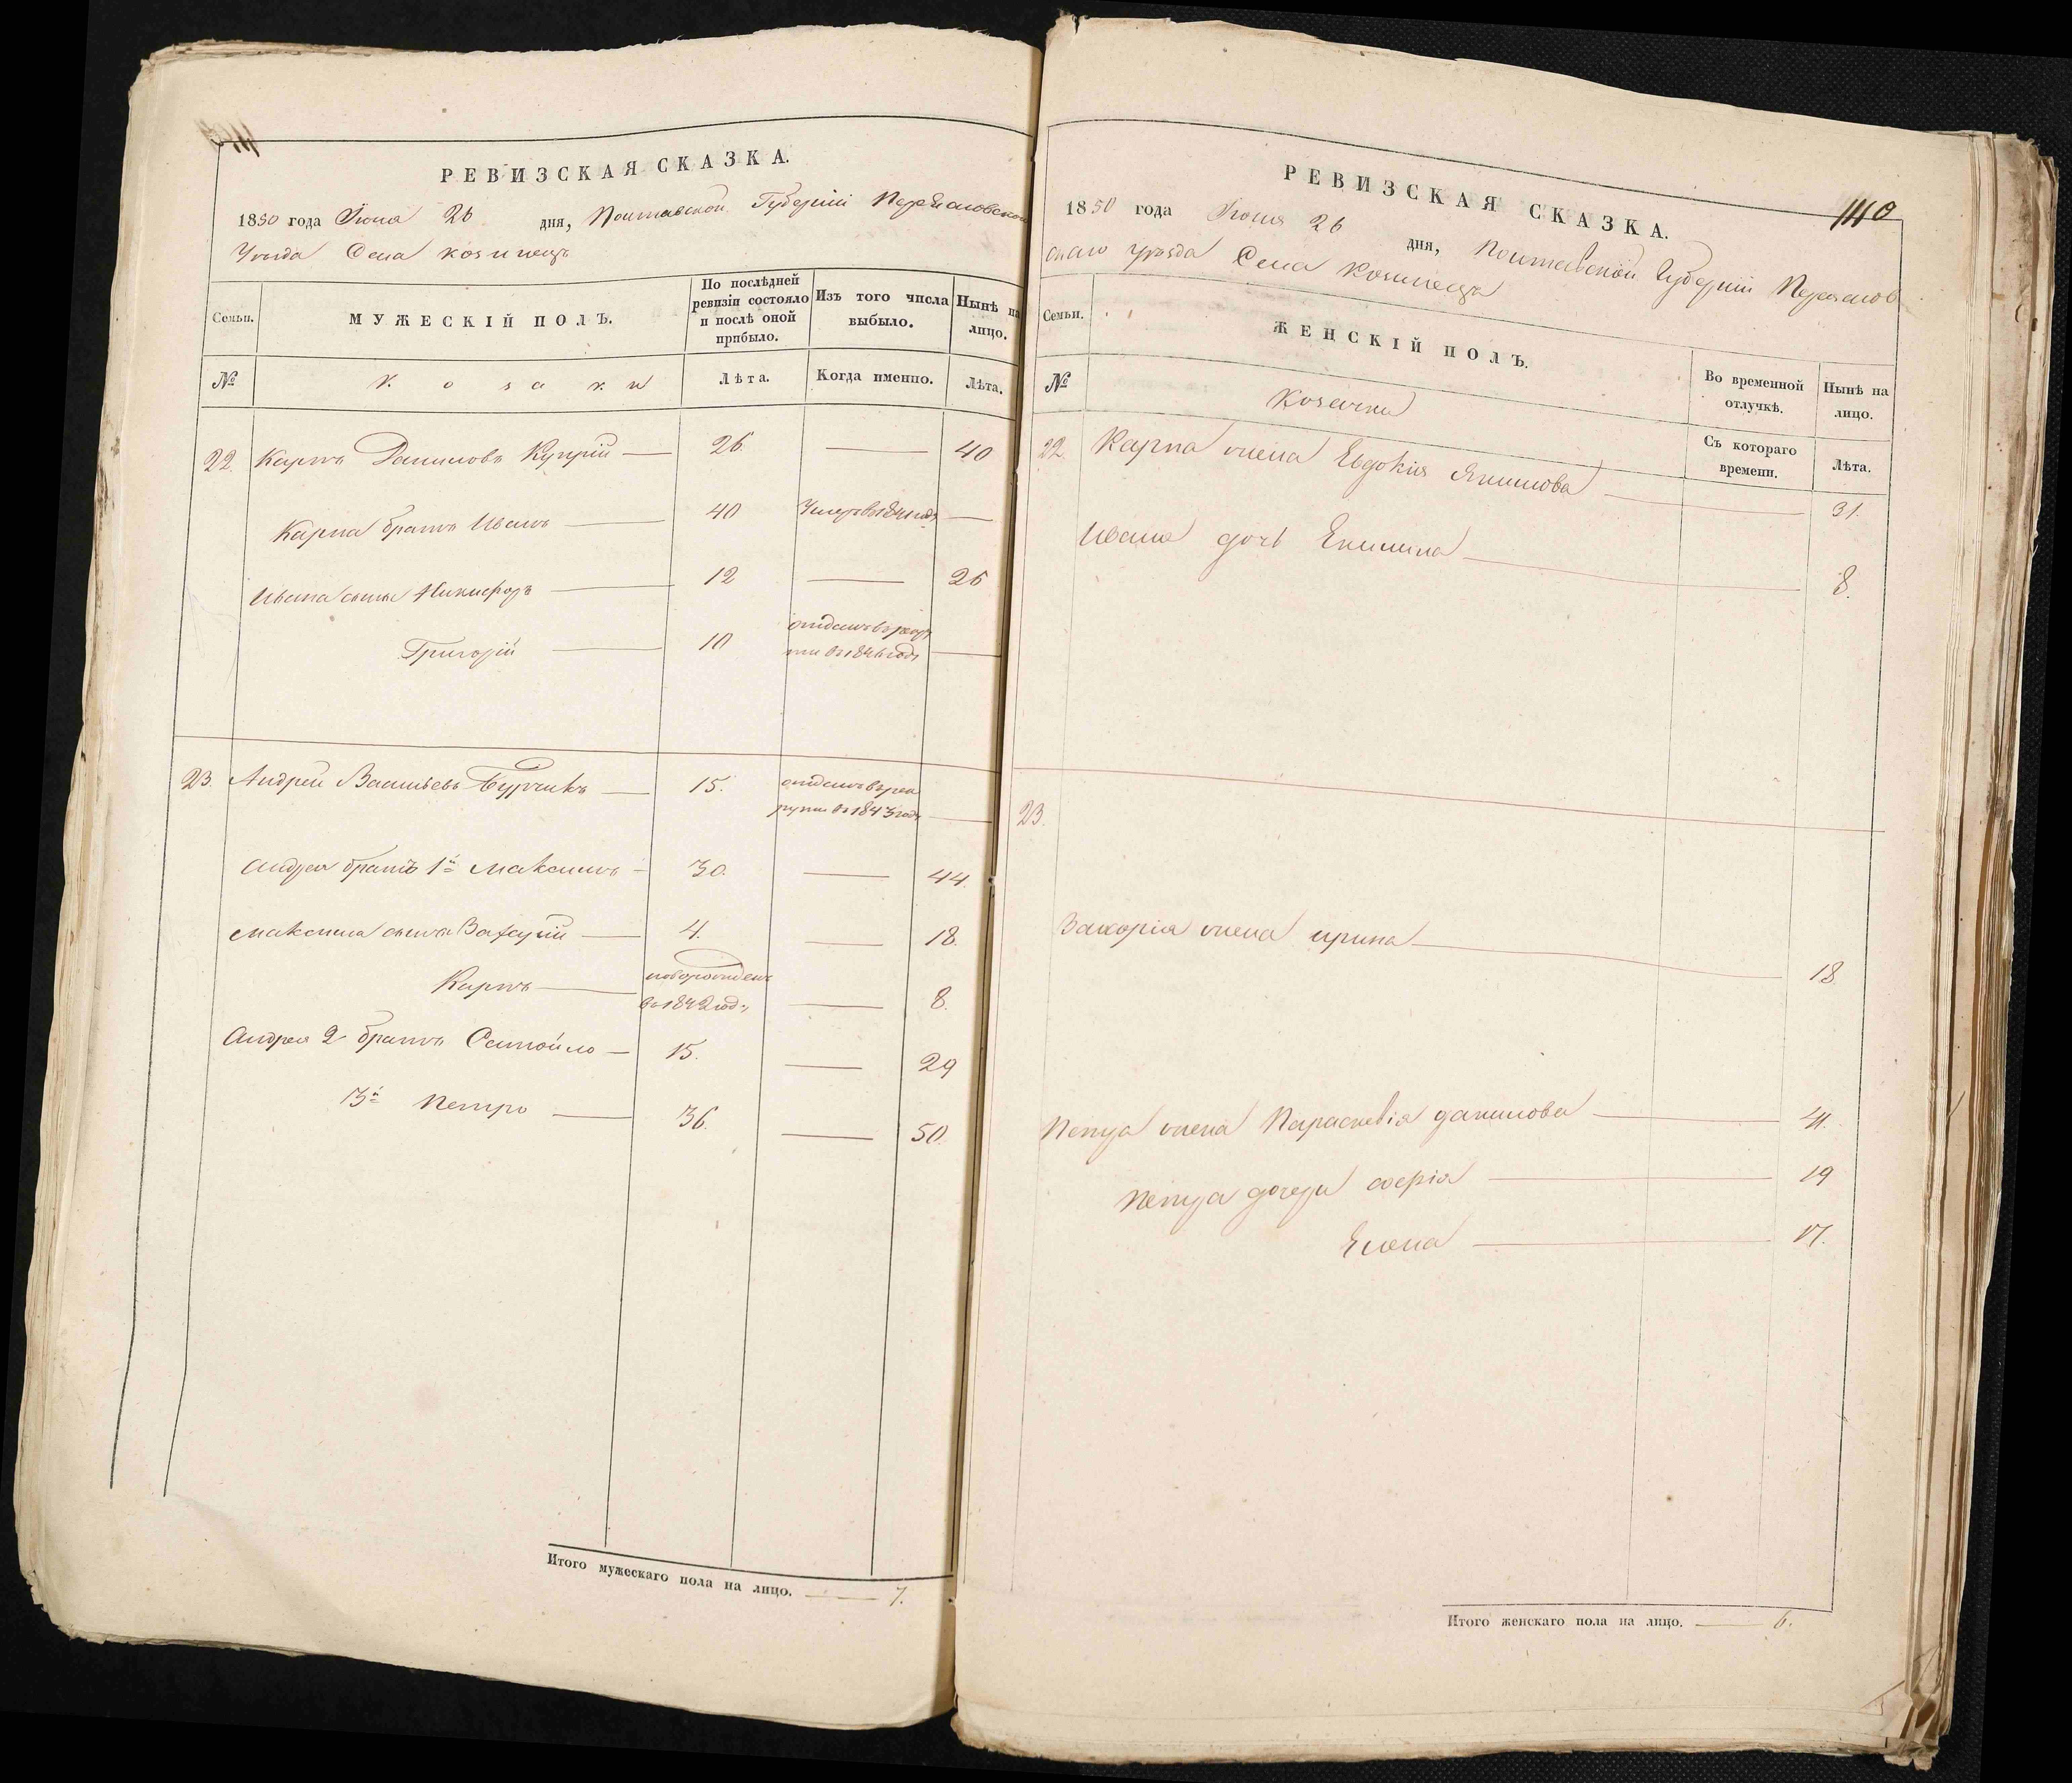 РЕВИЗСКАЯ СКАЗКА.
1850 года Іюня 26 дня, Полтавской Губерніи Переяславского
Уезда Села козинець
Семьи. МУЖЕСКІЙ ПОЛЪ. По послѣдней ревизіи состояло и послѣ оной прибыло. Изъ того числа выбыло. Нынѣ на лицо.
№ козаки Лѣта. Когда именно. Лѣта.
22. Карпъ Даниловъ Куприй — 26. — 40
Карпа братъ Иванъ — 40 Умеръ въ 1841 годѣ —
Ивана сынъ Никифоръ — 12 — 26
Григорій — 10 отданъ въ рекруты въ 1846 годѣ —
23. Андрей Васильевъ Бурчикъ — 15. отданъ въ рекруты въ 1843 годѣ —
Андрея братъ 1й Максимъ — 30. — 44.
Максима сыны Захарій — 4. — 18.
Карпъ — новорожденъ въ 1842 годѣ — 8.
Андрея 2 братъ Самойло — 15. — 29
3й Петро — 36. — 50.
Итого мужескаго пола на лицо. — 7.
110
РЕВИЗСКАЯ СКАЗКА.
1850 года Іюня 26 дня, Полтавской Губерніи Переяслов
скаго уѣзда Села Козинеця
Семьи. ЖЕНСКІЙ ПОЛЪ. Во временной отлучкѣ. Нынѣ на лицо.
№ Козачки Съ котораго времени. Лѣта.
22. Карпа жена Евдокия Якимова — 31.
Ивана дочь Екилина — 8.
23.
Захорія жена ирина — 18
Петра жена Параскевія данилова — 41.
Петра дочери софія — 19
Елена — 17.
Итого женскаго пола на лицо. — 6.